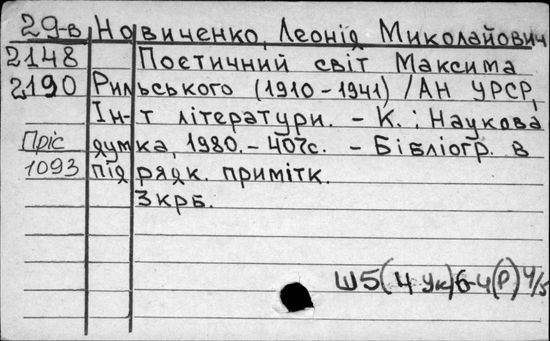 29-в Новиченко, Леонід Миколайович
2148 Поетичний світ Максима
2190 Рильського (1910-1941) / АН УРСР,
Ін-т літератури. - К.: Наукова
Пріс думка, 1980. - 407с. - Бібліогр. в
1093 підрядк. примітк.
3 крб.
Ш5(4 Ук)6-4(Р)4/5